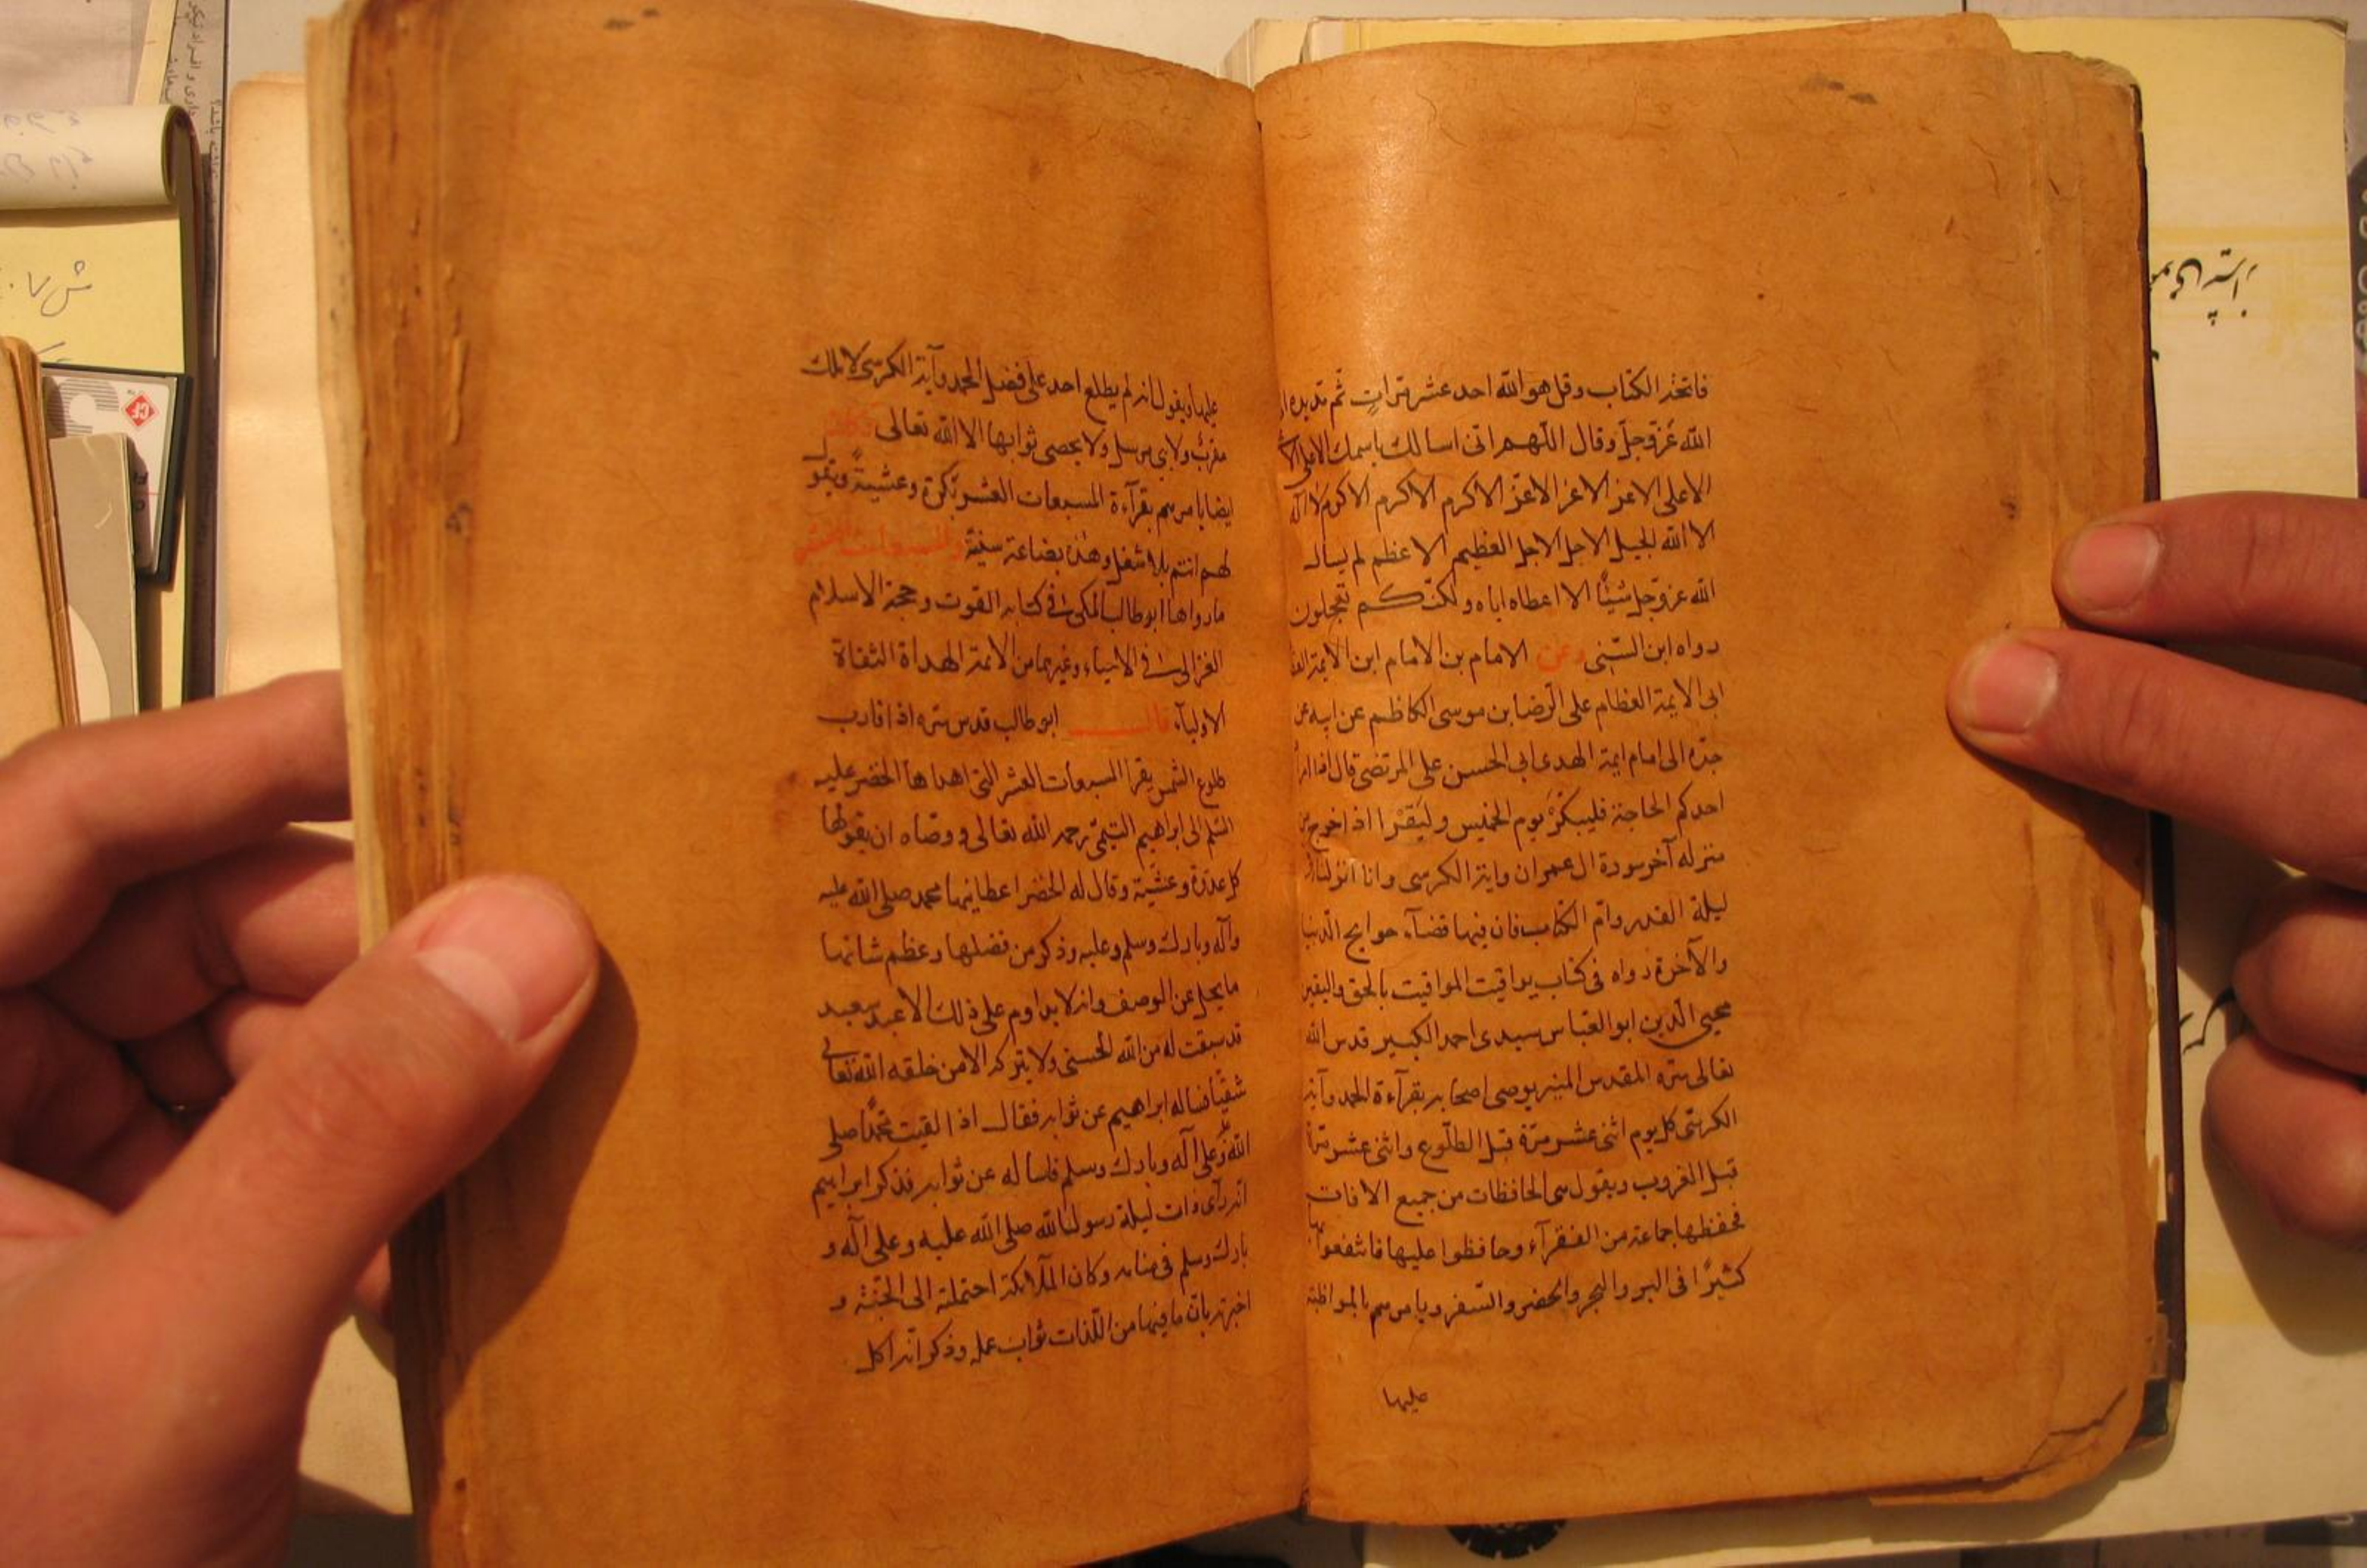 فاتحة الكتاب وقل هو الله احد عشر مرات ثم مد يده
الله عزوجل وقال اللهم انى اسالك باسمك الاعلى
الاعلى الاعز الاعز الاعز الاكرم الاكرم الاكرم لا اله
الا الله الجليل الاجل الاجل العظيم الاعظم لم يسال
الله عزوجل شيئًا الا اعطاه اياه ولكنكم تعجلون
رواه ابن السنى وعن الامام بن الامام ابن الايمة
ابى الايمة العظام على الرضا بن موسى الكاظم عن ابيه عن
جده الى امام ايمة الهدى ابى الحسن على المرتضى قال اذا اراد
احدكم الحاجة فليبكر يوم الخميس وليقرا اذا خرج من
منزله آخر سورة ال عمران واية الكرسى وانا انزلناه
ليلة القدر وام الكتاب فان فيها قضآء حوايج الدنيا
والآخرة رواه فى كتاب يواقيت المواقيت بالحق واليقين
محيى الدين ابو العباس سيدى احمد الكبير قدس الله
تعالى سره المقدس المنير يوصى اصحابه بقرآءة الحمد وآية
الكرسى كل يوم اثنى عشر مرة قبل الطلوع واثنى عشر مرة
قبل الغروب ويقول هى الحافظات من جميع الافات
فحفظها جماعة من الفقرآء وحافظوا عليها فانتفعوا بها
كثيرًا فى البر والبحر والحضر والسفر ويامرهم بالمواظبة
عليها
عليها ويقول انه لم يطلع احد على فضل الحمد وآية الكرسى لا ملك
مقرب ولا نبى مرسل ولا يحصى ثوابها الا الله تعالى
ايضا يامرهم بقرآءة المسبعات العشر بكرة وعشية ويقول
لهم انتم بلا شغل وهذه بضاعة سنية والمسبعات العشر
ما رواها ابو طالب المكى فى كتابه القوت وحجة الاسلام
الغزالى فى الاحياء وغيرهما من الائمة الهداة الثقاة
الاوليآء قال ابو طالب قدس سره اذا قارب
طلوع الشمس يقرا المسبعات العشر التى اهداها الخضر عليه
السلم الى ابراهيم التيمى رحمه الله تعالى ووصاه ان يقولها
كل غدوة وعشية وقال له الخضر اعطانيها محمد صلى الله عليه
وآله وبارك وسلم وعليه وذكر من فضلها وعظم شانها
ما يجل عن الوصف وانه لا يداوم على ذلك الا عبد سعيد
قد سبقت له من الله الحسنى ولا يتركه الا من خلقه الله تعالى
شقيًا فساله ابراهيم عن ثوابه فقال اذا لقيت محمدًا صلى
الله وعلى آله وبارك وسلم فاساله عن ثوابه فذكر ابراهيم
انه رآى ذات ليلة رسول الله صلى الله عليه وعلى آله و
بارك وسلم فى منامه وكان الملائكة احتملته الى الجنة و
اخبرته بان ما فيها من اللذات ثواب عمله وذكر انه اكل